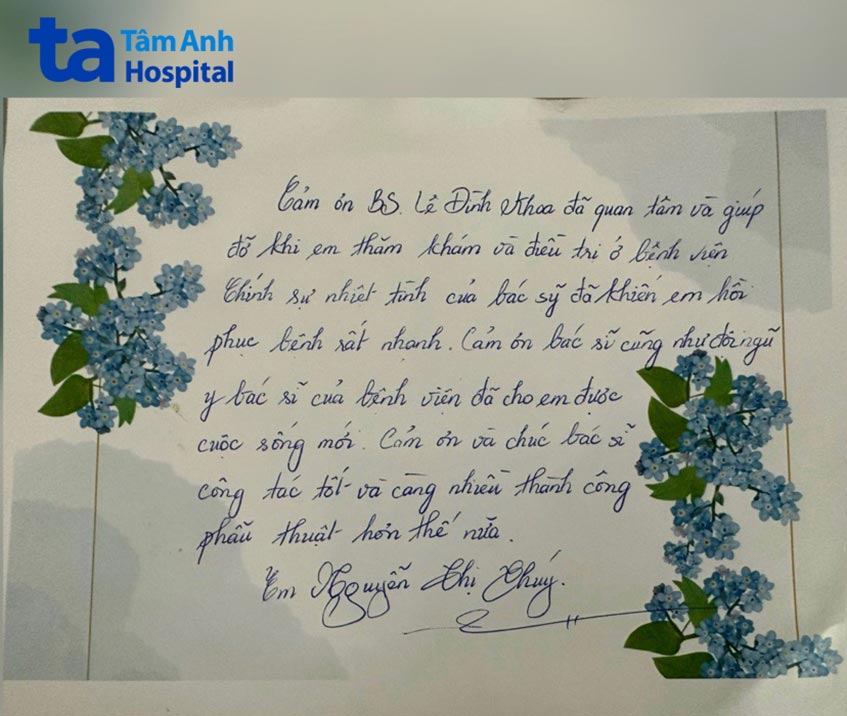 ta Tâm Anh
Hospital
Cảm ơn BS. Lê Đình Khoa đã quan tâm và giúp
đỡ khi em thăm khám và điều trị ở bệnh viện
Chính sự nhiệt tình của bác sỹ đã khiến em hồi
phục bệnh rất nhanh. Cảm ơn bác sĩ cũng như đội ngũ
y bác sĩ của bệnh viện đã cho em được
cuộc sống mới. Cảm ơn và chúc bác sĩ
công tác tốt và càng nhiều thành công
phẫu thuật hơn thế nữa.
Em Nguyễn Thị Thúy.